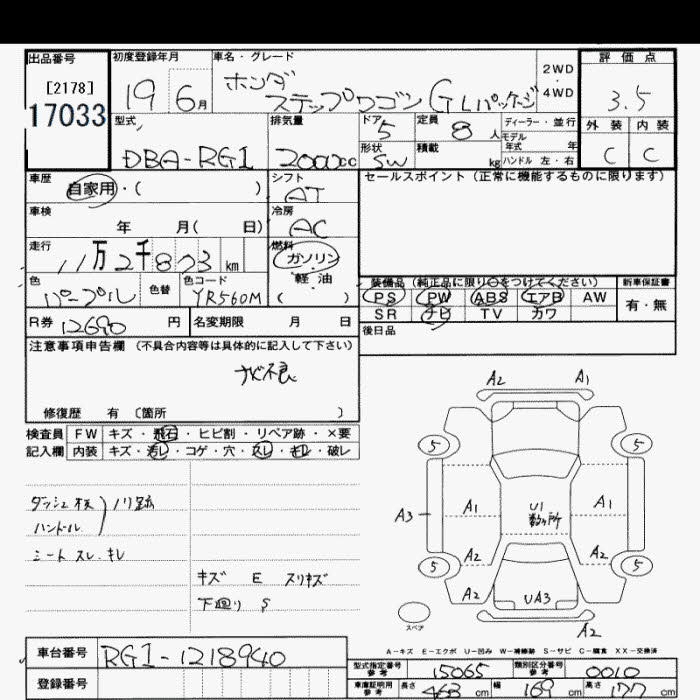 出品番号 初度登録年月 車名・グレード 2WD・4WD 評価点
[2178]
17033
19 6月 ホンダ ステップワゴン GLパッケージ 3.5
型式 排気量 ドア 5 定員 8人 ディーラー・並行 外装 内装
モデル年式 年
DBA-RG1 2000cc 形状 SW 積載 kg ハンドル 左・右 C C
車歴 自家用・( ) シフト AT セールスポイント(正常に機能するものに限ります)
車検 年 月( 日) 冷房 AC
走行 11万2千873km 燃料 ガソリン・軽油 ( )
色 パープル 色替 色コード YR560M
装備品(純正品に限り○をつけてください) 新車保証書
PS PW ABS エアB AW 有・無
SR ナビ TV カワ
R券 12690円 名変期限 月 日 後日品
注意事項申告欄(不具合内容等は具体的に記入して下さい)
ナビ不良
修復歴 有 〔箇所 〕
検査員 FW キズ・飛石・ヒビ割・リペア跡・×要
記入欄 内装 キズ・汚レ・コゲ・穴・スレ・キレ・破レ
ダッシュ板
ハンドル
シート スレ.キレ
キズ E スリキズ
下回り S
A2 A1
5 5
A3 A1 U1 数ヶ所 A1
A2 A2
5 5
A2 UA3
スペア A2
A-キズ E-エクボ U-凹み W-補修跡 S-サビ C-腐食 XX-交換済
車台番号 RG1-1218940
型式指定番号 参考 15065 類別区分番号 参考 0010
登録番号 車庫証明用 参考 長さ 463cm 幅 169cm 高さ 177cm